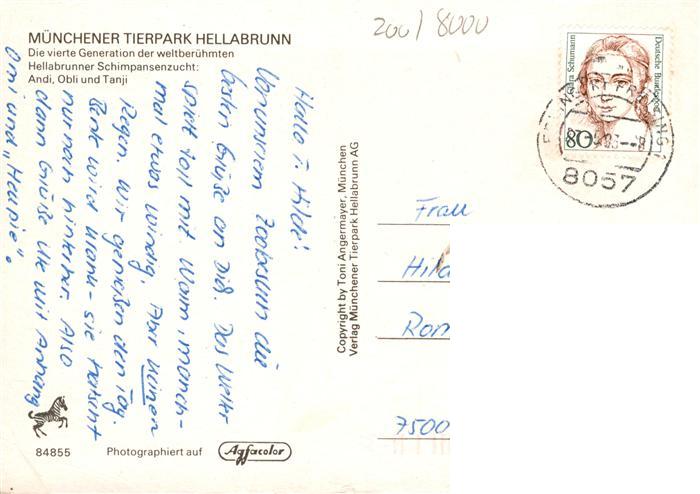 MÜNCHENER TIERPARK HELLABRUNN
Die vierte Generation der weltberühmten
Hellabrunner Schimpansenzucht:
Andi, Obli und Tanji
200/8000
Clara Schumann
Deutsche Bundespost
80
8057
Hallo i Hilde!
Von unserem Zoobesuch die
besten Grüße an Dich. Das Wetter
spielt toll mit. Warm, manch-
mal etwas windig, aber keinen
Regen. Wir genießen den Tag.
wird krank - sie
nur noch hinterher. Also
dann Grüße Uli mit Anhang
Omi und "Heupie".
Copyright by Toni Angermayer, München
Verlag Münchener Tierpark Hellabrunn AG
Frau
Hild
Ron
7500
84855
Photographiert auf
Agfacolor